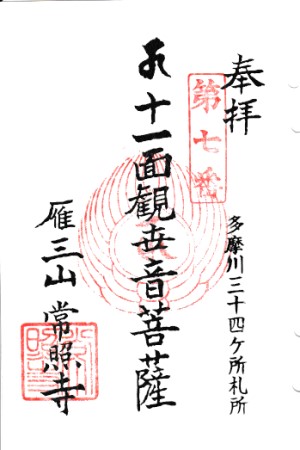 奉拝
第七番
多摩川三十四ケ所札所
十一面観世音菩薩
雁三山 常照寺